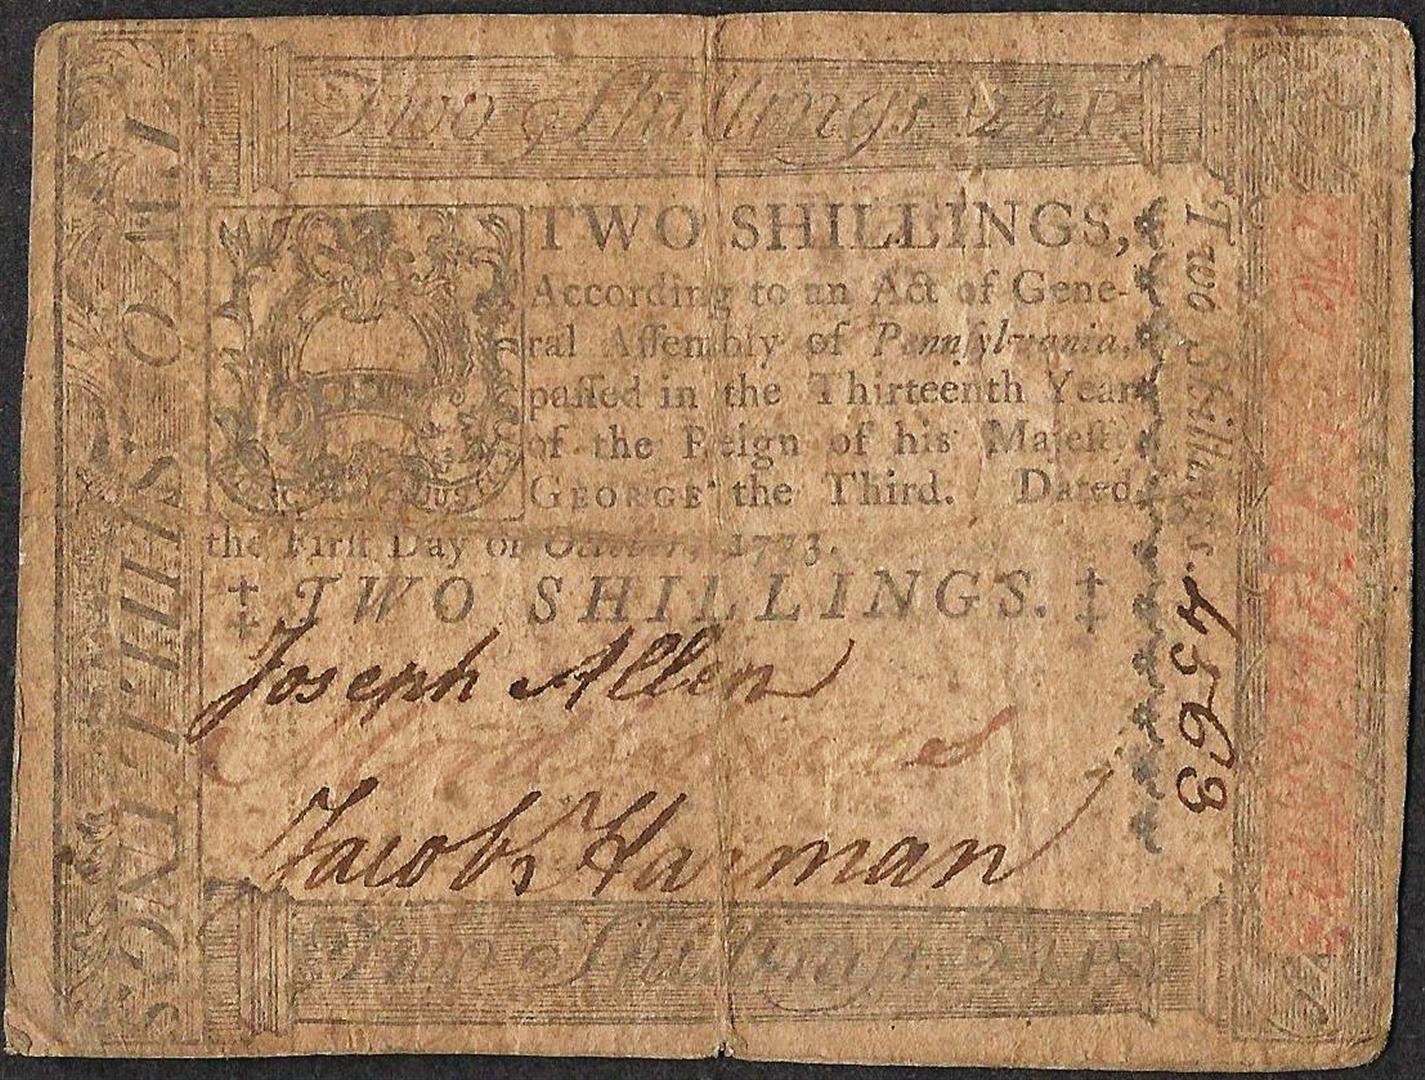 Two Shillings 24P.
TWO SHILLINGS
TWO SHILLINGS,
According to an Act of Gene-
ral Aſſembly of Pennſylvania,
paſſed in the Thirteenth Year
of the Reign of his Majeſty
GEORGE the Third. Dated
the Firſt Day of October, 1773.
‡ TWO SHILLINGS. ‡
Joseph Allen
Jacob Harman
Two Shillings.
4563
Two Shillings